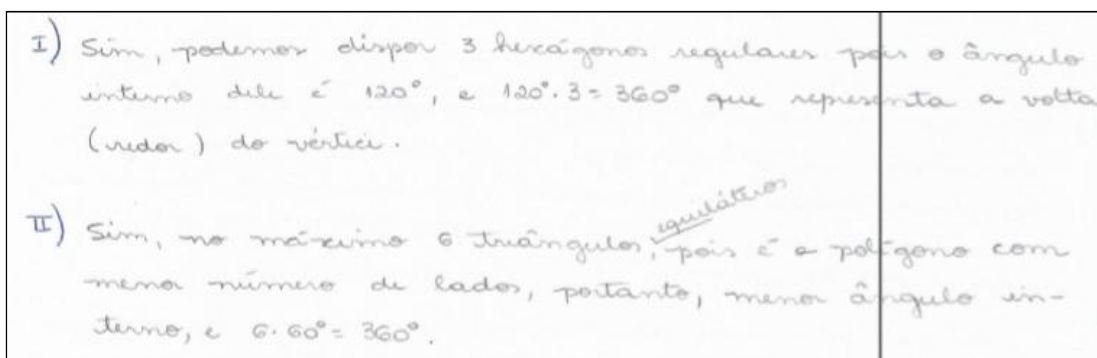 I) Sim, podemos dispor 3 hexágonos regulares pois o ângulo
interno dele é 120°, e 120°.3 = 360° que representa a volta
(redor) do vértice.
II) Sim, no máximo 6 triângulos, equiláteros pois é o polígono com
menor número de lados, portanto, menor ângulo in-
terno, e 6.60° = 360°.